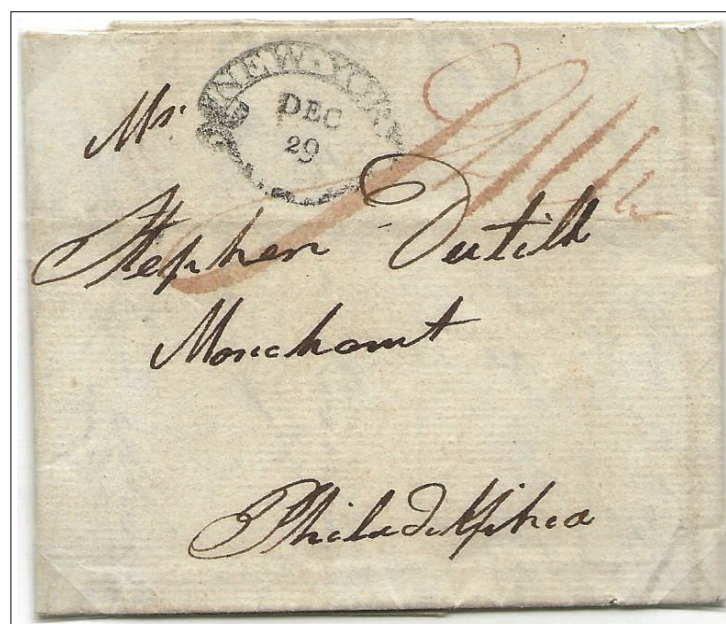 NEW-YORK
DEC
29
Mr
Stephen Dutilh
Merchant
Philadelphia